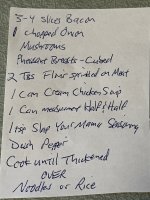 3-4 slices Bacon
1 Chopped Onion
Mushrooms
Pheasant Breasts - Cubed
2 Tbs Flour sprinkled on Meat
1 Can Cream Chicken Soup
1 Can measurement Half/Half
1 tsp Slap Your Mama Seasoning
Dash Pepper
Cook until Thickened
OVER
Noodles or Rice